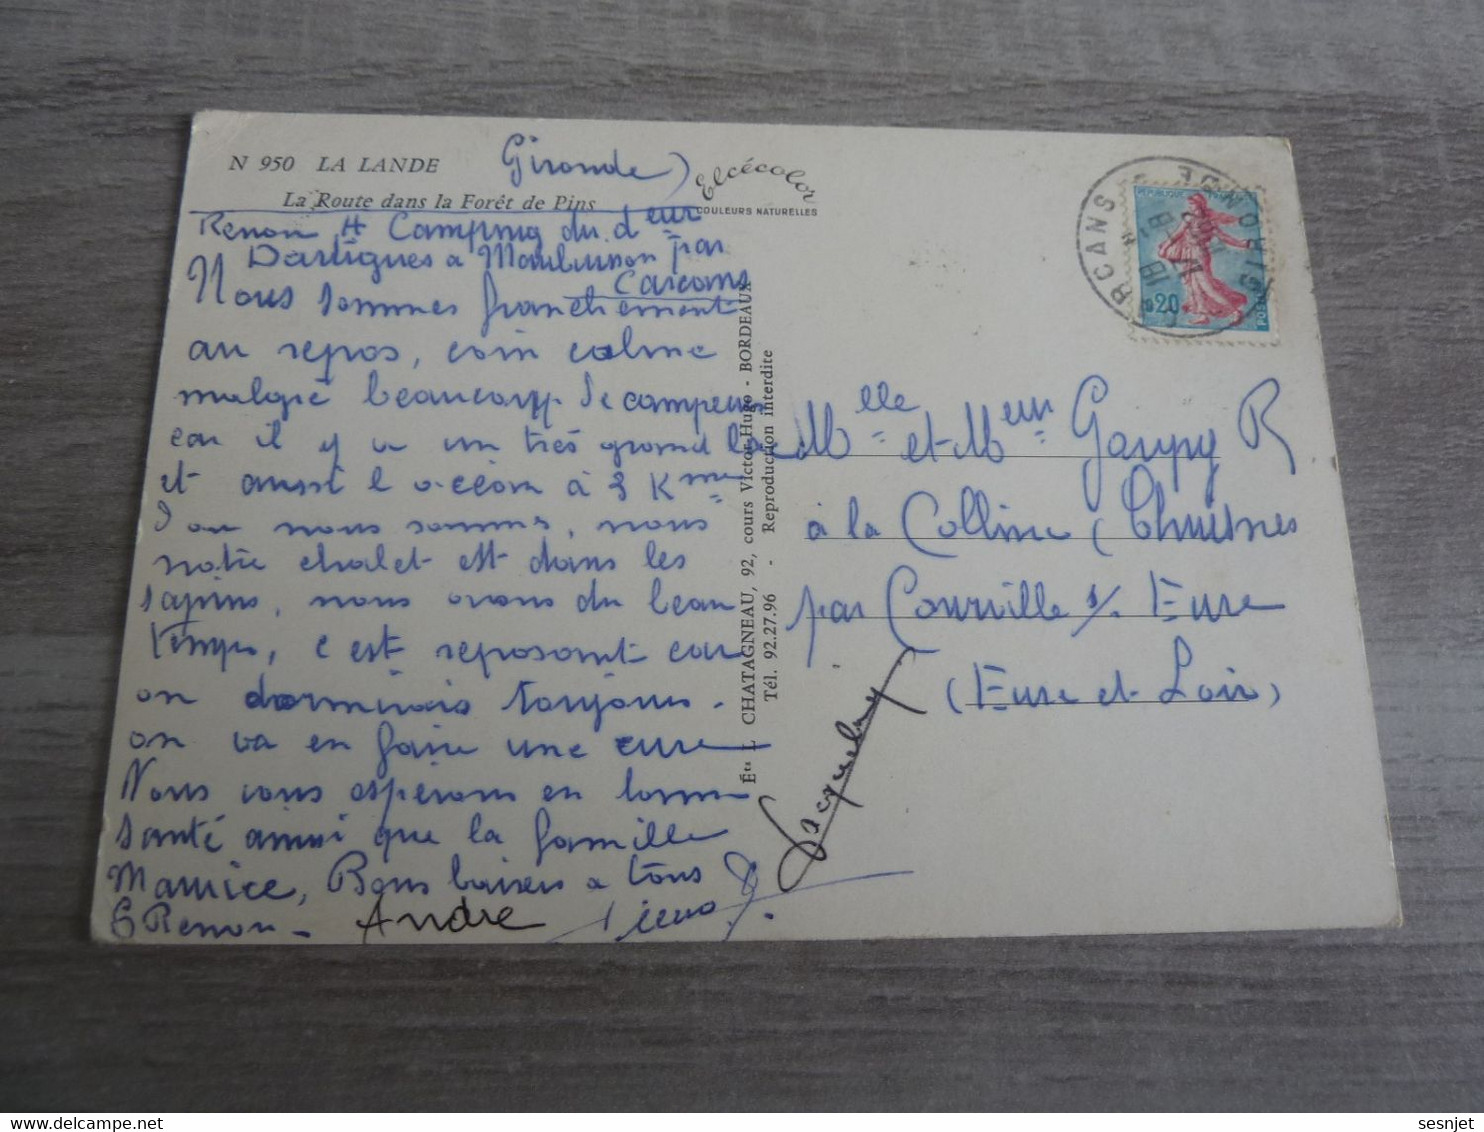 N 950 LA LANDE
Gironde)
La Route dans la Forêt de Pins
Elcécolor
COULEURS NATURELLES
Renon H Camping du d eur
Dartigues a Maubuisson par
Carcans
Nous sommes franchement
au repos, coin calme
malgré beaucoup de campeurs
car il y a un très grand lac
et aussi l océan à 3 Kme
d'ou nous sommes, nous
notre chalet est dans les
sapins, nous avons du beau
temps, c est reposant car
on dormirais toujours.
on va en faire une cure
Nous vous espérons en bonne
santé ainsi que la famille
Maurice, Bons baisers a tous
G Renon - Andre
Jacqueline
Éts L CHATAGNEAU, 92, cours Victor-Hugo - BORDEAUX
Tél. 92.27.96 - Reproduction interdite
CARCANS
GIRONDE
REPUBLIQUE
0,20
POSTES
Melle et Meur Gaupy R
à la Colline (Thuisnes
par Courville s/ Eure
(Eure et Loir)
sesnjet